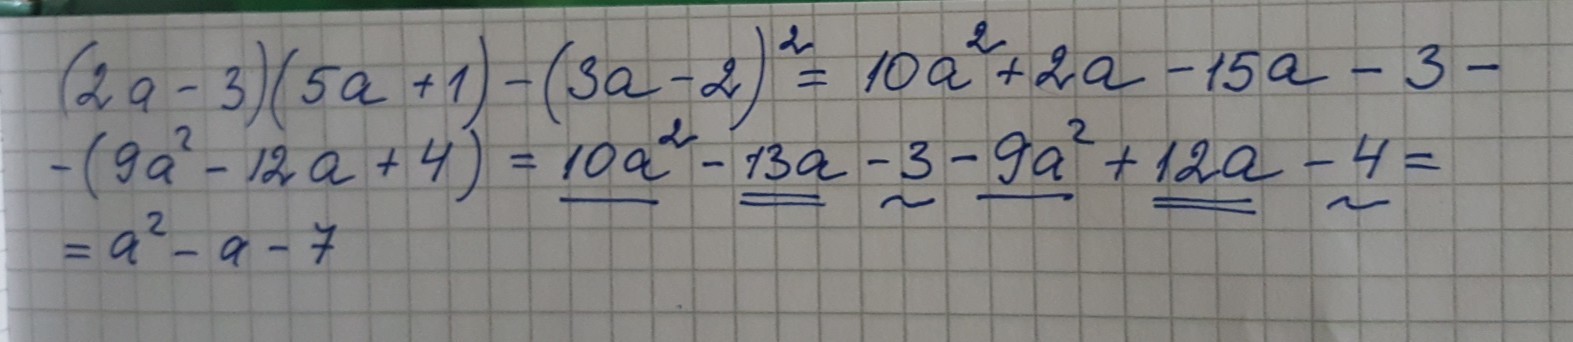 (2a - 3)(5a + 1) - (3a - 2)² = 10a² + 2a - 15a - 3 -
- (9a² - 12a + 4) = 10a² - 13a - 3 - 9a² + 12a - 4 =
= a² - a - 7